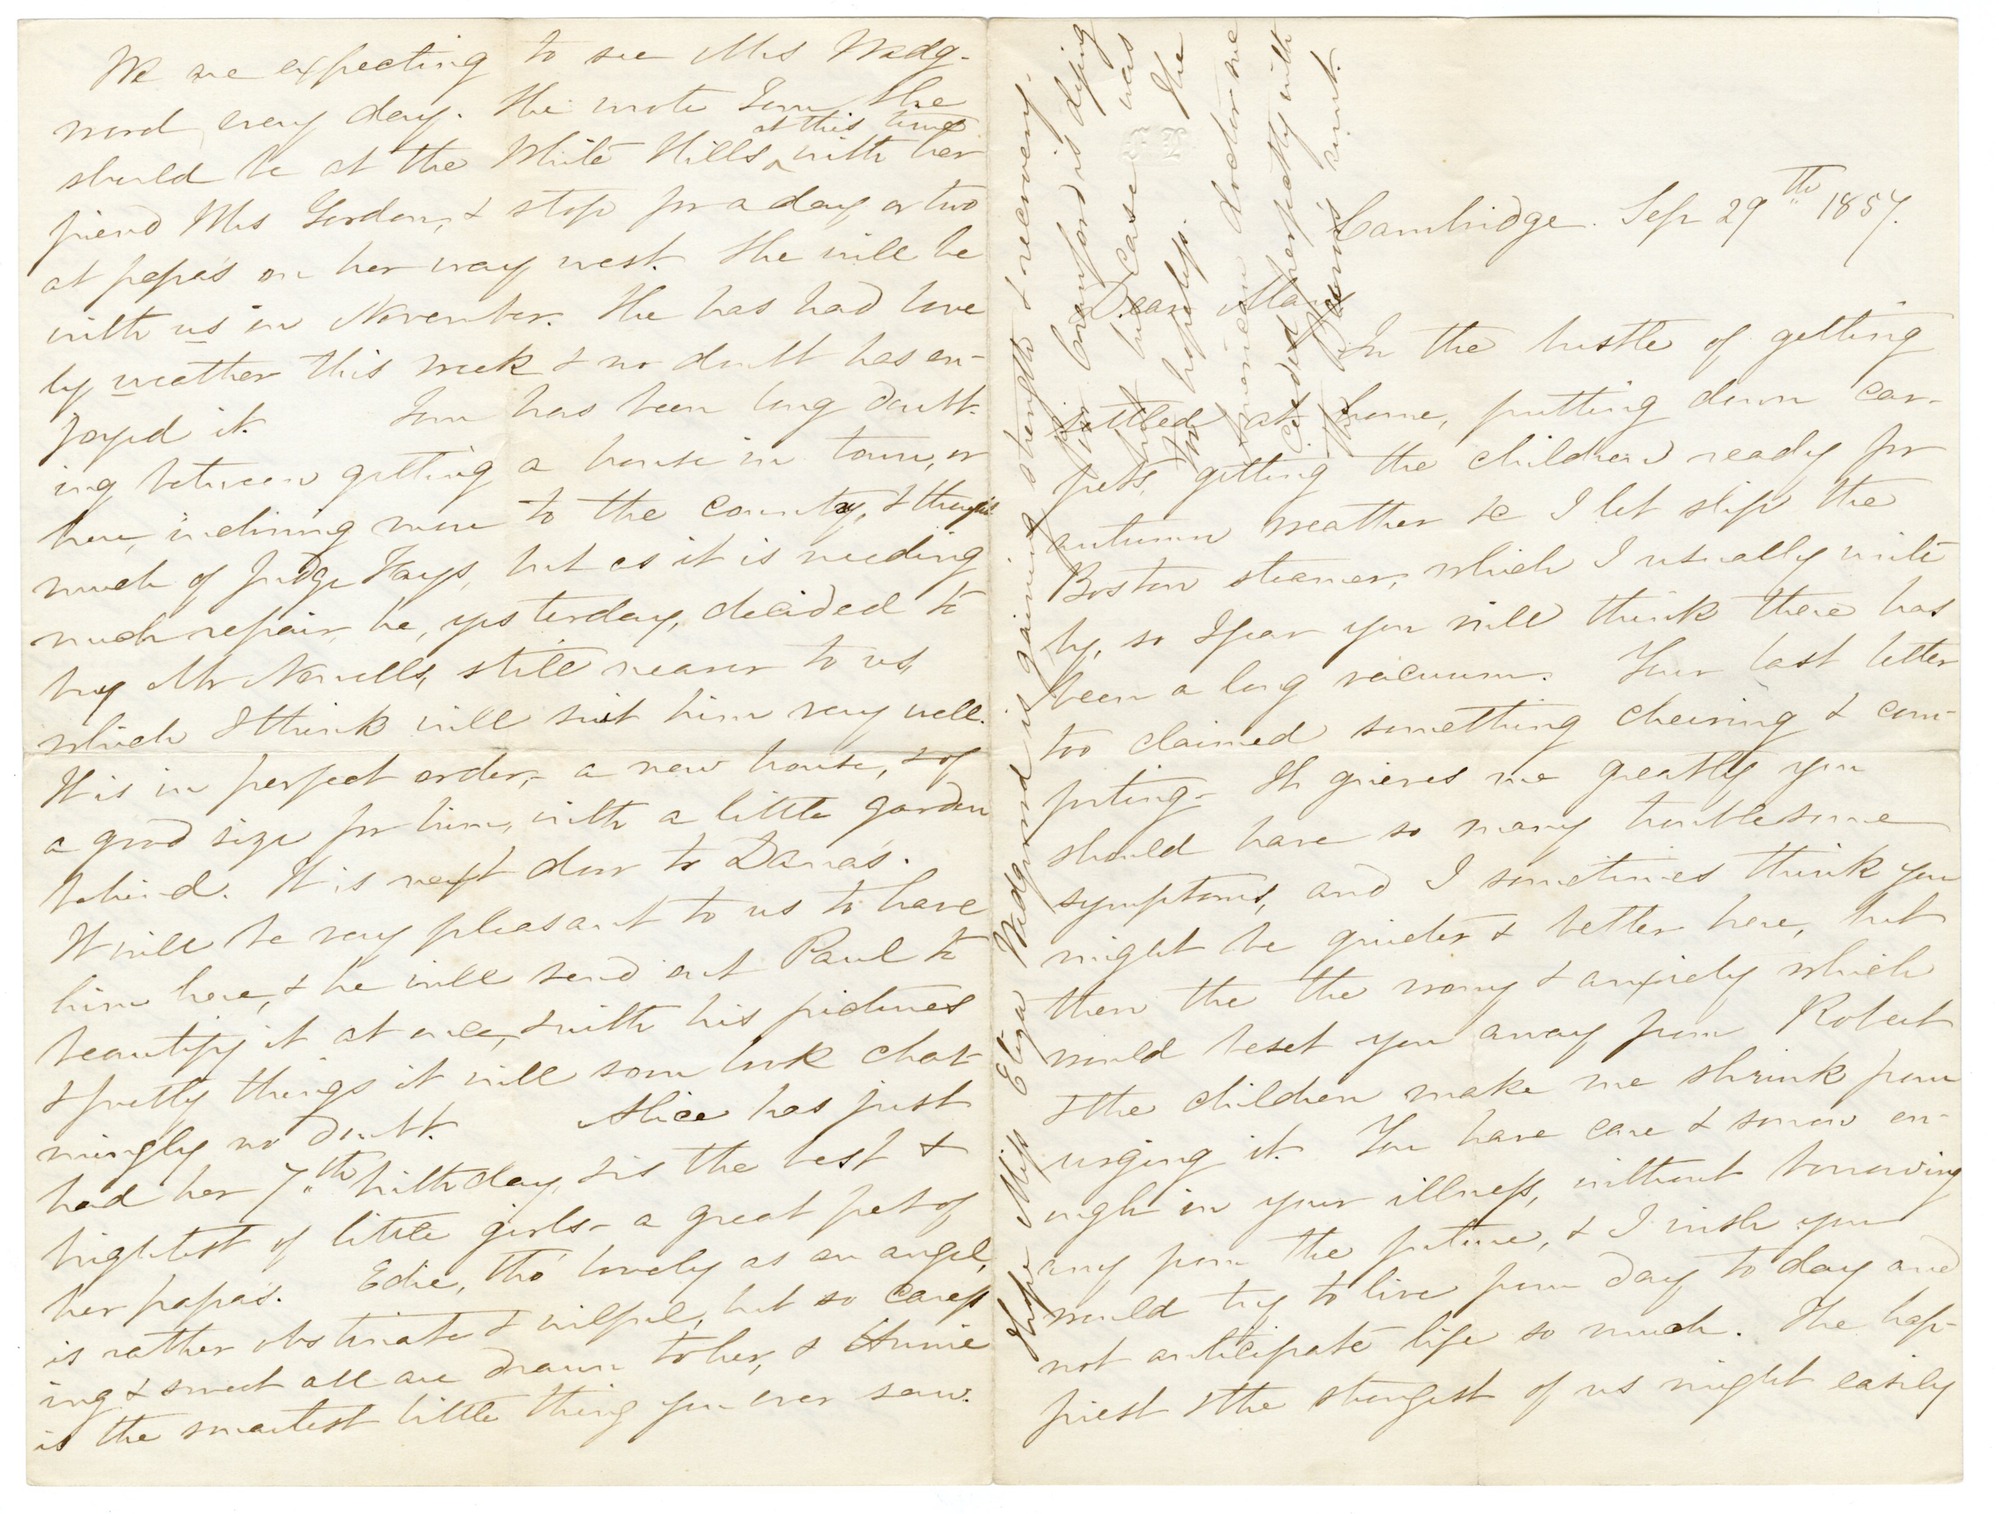 Cambridge. Sep 29th 1857.
Dear Mary
In the bustle of getting
settled at home, putting down car-
pets, getting the children ready for
autumn weather &c I let slip the
Boston steamer, which I usually write
by, so I fear you will think there has
been a long vacuum. Your last letter
too claimed something cheering & com-
forting - It grieves me greatly you
should have so many troublesome
symptoms, and I sometimes think you
might be quieter & better here, but
then the the worry & anxiety which
would beset you away from Robert
& the children make me shrink from
urging it. You have care & sorrow en-
ough in your illness, without borrowing
any from the future, & I wish you
would try to live from day to day and
not anticipate life so much. The hap-
piest & the strongest of us might easily
I hope Miss Eliza Wedgwood is gaining strength & recovery.
Mr Crawford is dying
but his case was
too hopeless. The
American doctor
ceeded perfectly with
aunt.
We are expecting to see Mrs Wedg-
wood every day. She wrote Tom she
should be at the White Hills at this time with her
friend Mrs Gordon, & stop for a day or two
at papa's on her way west. She will be
with us in November. She has had love
ly weather this week & no doubt has en-
joyed it. Tom has been long doubt-
ing between getting a house in town, or
here, inclining more to the country, & thought
much of Judge Fays, but as it is needing
much repair, he, yesterday, decided to
buy Mr Nowells, still nearer to us,
which I think will suit him very well.
It is in perfect order, - a new house, & of
a good size for him, with a little garden
behind. It is next door to Danas.
It will be very pleasant to us to have
him here, & he will send out Paul to
beautify it at once, & with his pictures
& pretty things it will soon look char
mingly no doubt. Alice has just
had her 7th birthday, & is the best &
brightest of little girls - a great pet of
her papa's. Edie, tho' lovely as an angel,
is rather obstinate & wilful, but so caress
ing & sweet all are drawn to her, & Annie
is the smartest little thing you ever saw.